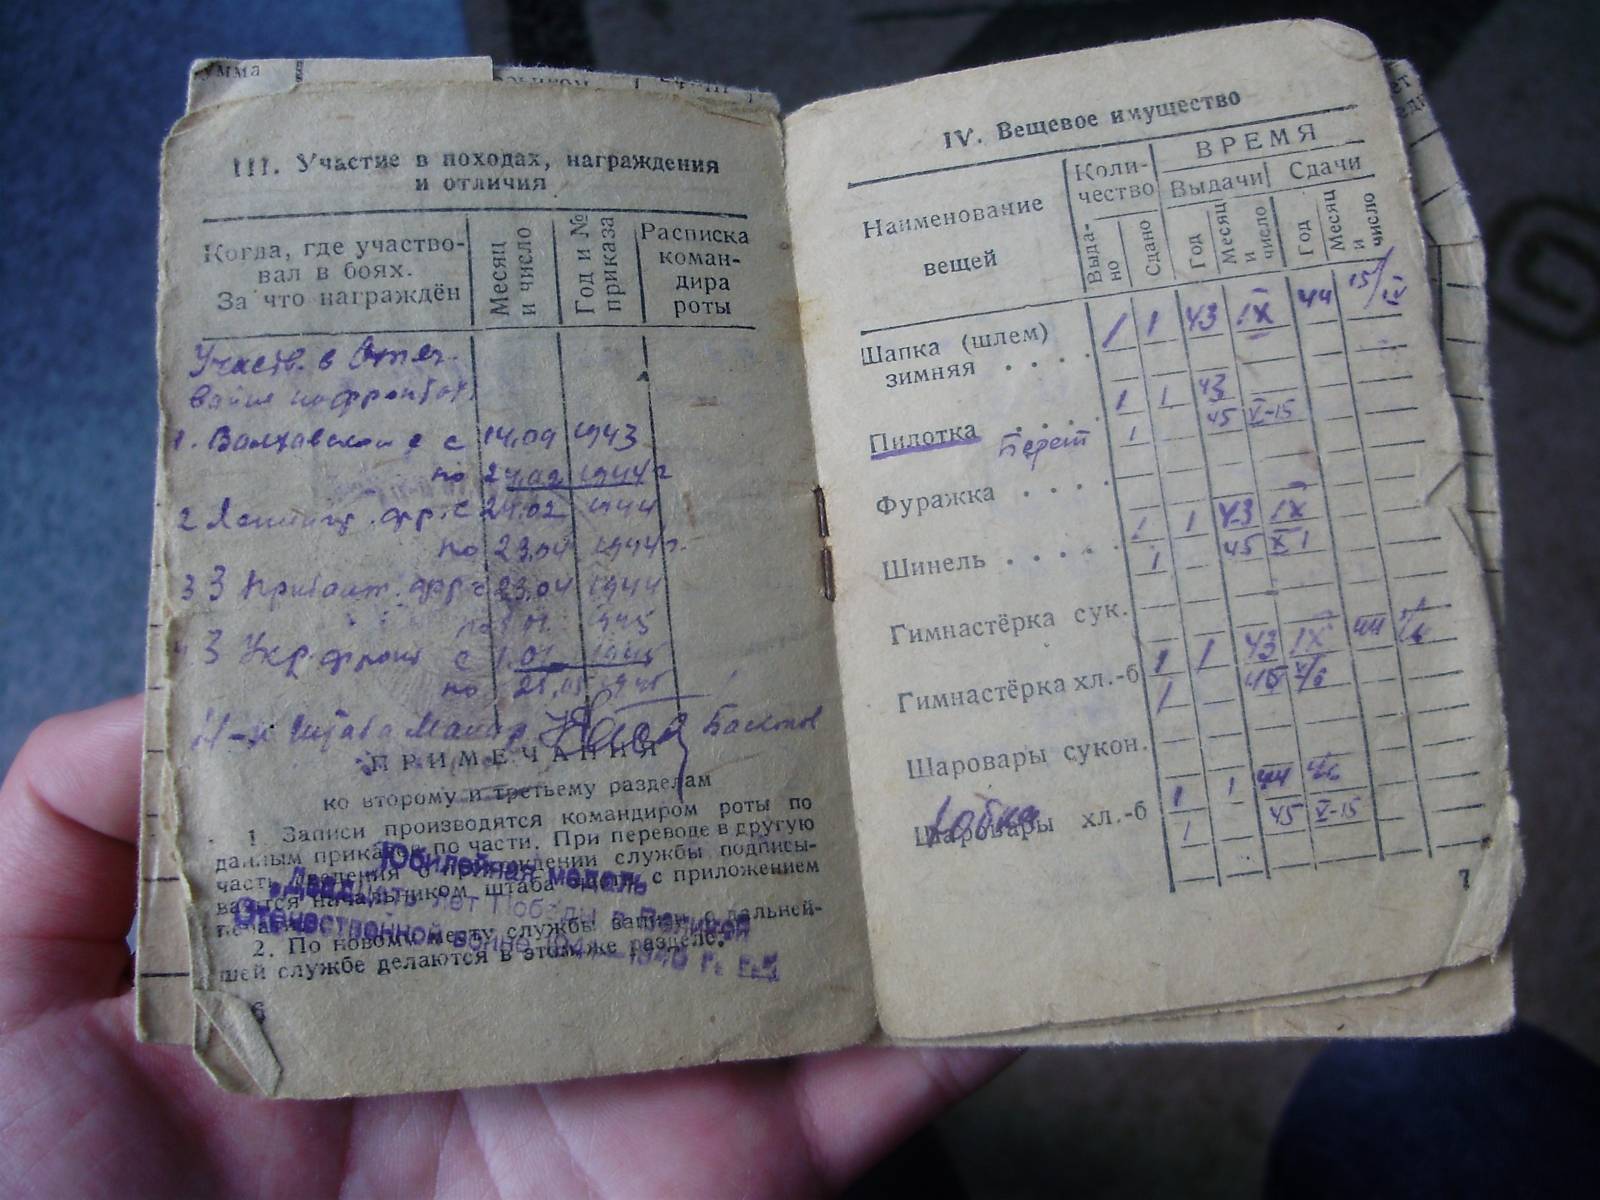 умма
III. Участие в походах, награждения
и отличия
Когда, где участво-
вал в боях.
За что награждён
Месяц
и число
Год и №
приказа
Расписка
коман-
дира
роты
Участв. в Отеч.
войне на фронтах
1. Волховском с 14.09 1943
по 24.02 1944 г
2 Ленингр. фр. с 24.02 1944
по 23.04 1944 г.
3 3 Прибалт. фр. с 23.04 1944
по 1.01. 1945
4 3 Укр. фронт с 1.01 1945
по 1945
Н-к штаба Майор
ПРИМЕЧАНИЯ
ко второму и третьему разделам
1. Записи производятся командиром роты по
данным приказов по части. При переводе в другую
часть сведения о прохождении службы подписы-
ваются начальником штаба части с приложением
печати.
2. По новому месту службы записи о дальней-
шей службе делаются в этом же разделе.
Юбилейная медаль
„Двадцать лет Победы в Великой
Отечественной войне 1941—1945 г. г.“
6
IV. Вещевое имущество
Наименование
вещей
Коли-
чество
ВРЕМЯ
Выдачи
Сдачи
Выда-
но
Сдано
Год
Месяц
и
число
Год
Месяц
и
число
Шапка (шлем)
зимняя . . . . 1 1 43 IX 44 15/IV
1 1 43
Пилотка . . . . 1 45 V-15
Берет
Фуражка . . . .
1 1 43 IX
Шинель . . . . . 1 45 XI
Гимнастёрка сук.
1 1 43 IX 44
Гимнастёрка хл.-б 1 45
Шаровары сукон.
1 1 44
Шаровары хл.-б 1 45 V-15
Юбка
7